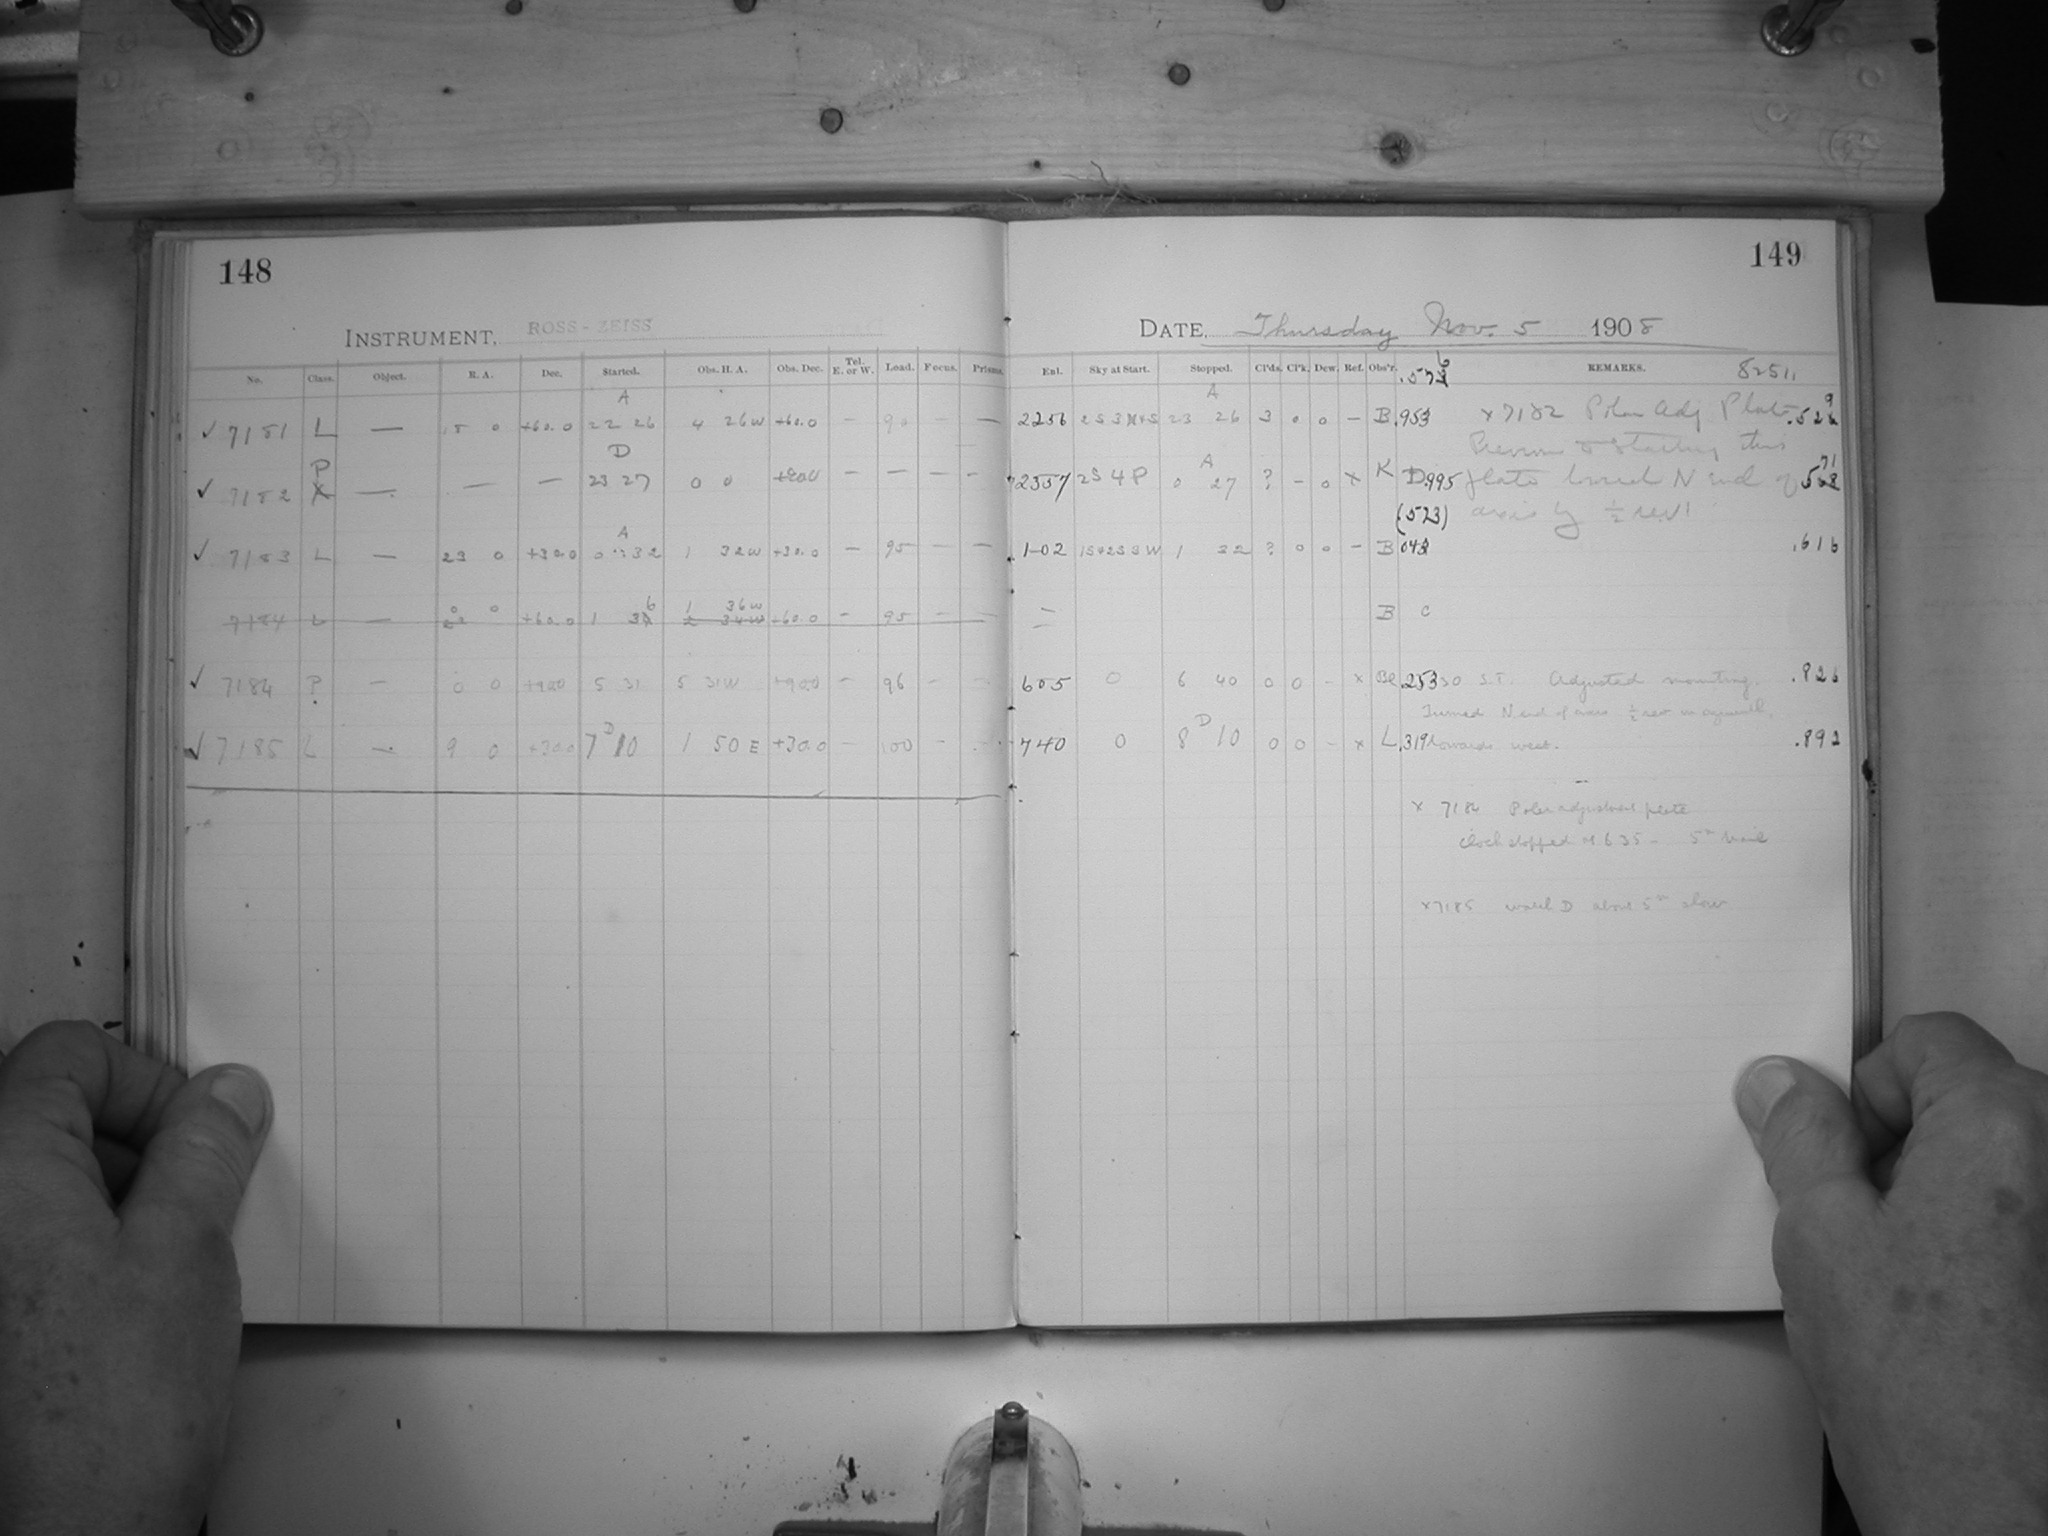 148
149
INSTRUMENT, ROSS-ZEISS
DATE, Thursday Nov. 5 1908
No. Class. Object. R. A. Dec. Started. Obs. H. A. Obs. Dec. Tel. E. or W. Load. Focus. Prisms. Enl. Sky at Start. Stopped. Cl'ds. Cl'k. Dew. Ref. Obs'r. REMARKS. 8251
A A
✓ 7181 L — +60.0 22 26 4 26W +60.0 — 90 — — 2256 23 26 3 0 0 — B .953 x 7182 Polar Adj Plate
D
Previous to starting this
✓ 7182 P — — — 23 27 0 0 — — — — 2357 2S 4P 0 A 27 ? — 0 x K D.995 plate turned N end of
(.573) axis by ½ rev!
A
✓ 7183 L — 23 0 +30.0 0 32 1 32W +30.0 — 95 — — 1 02 1 32 ? 0 0 — B .616
7184 L — 0 0 +60.0 1 36 1 36W +60.0 — 95 — — B C
✓ 7184 P — 0 0 +90.0 5 31 5 31W +90.0 — 96 — — 605 0 6 40 0 0 — x Be .253 S.T. Adjusted mounting. .826
Turned N end of axis ½ rev
✓ 7185 L — 9 0 +30.0 7 D 10 1 50 E +30.0 — 100 — 740 0 8 D 10 0 0 — x L .319 towards west. .892
x 7184 Polar adjustment plate
Clock stopped at 6 35 —
x 7185 watch D about 5m slow